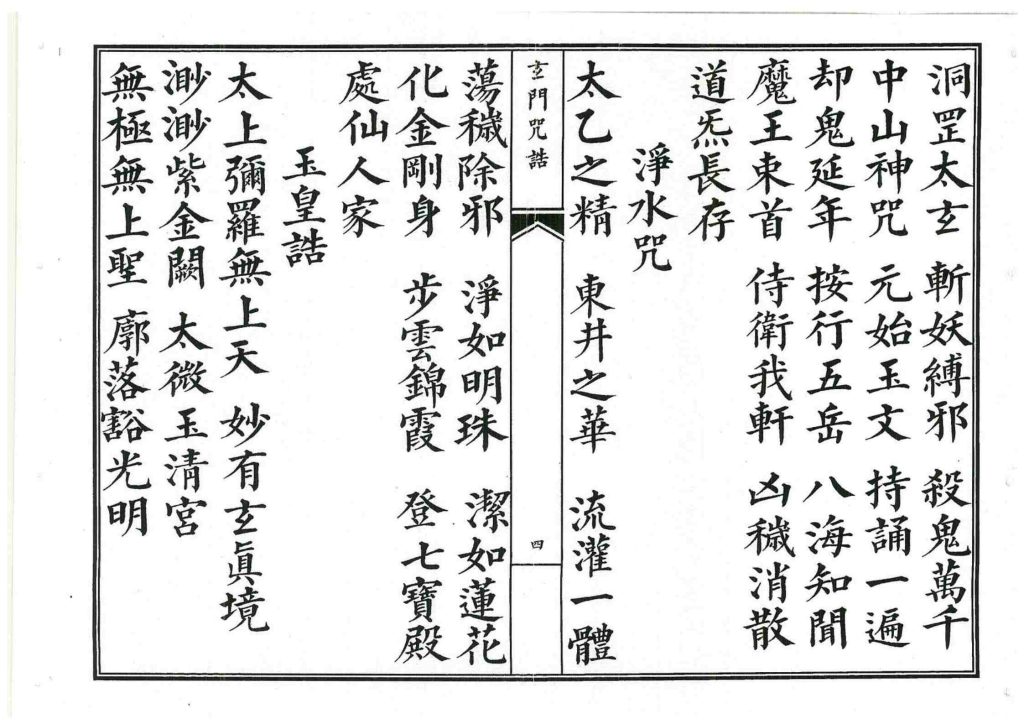 洞罡太玄　斬妖縛邪　殺鬼萬千
中山神咒　元始玉文　持誦一遍
却鬼延年　按行五岳　八海知聞
魔王束首　侍衛我軒　凶穢消散
道炁長存
淨水咒
太乙之精　東井之華　流灌一體
玄門咒誥　四
蕩穢除邪　淨如明珠　潔如蓮花
化金剛身　步雲錦霞　登七寶殿
處仙人家
玉皇誥
太上彌羅無上天　妙有玄眞境
渺渺紫金闕　太微玉清宮
無極無上聖　廓落豁光明